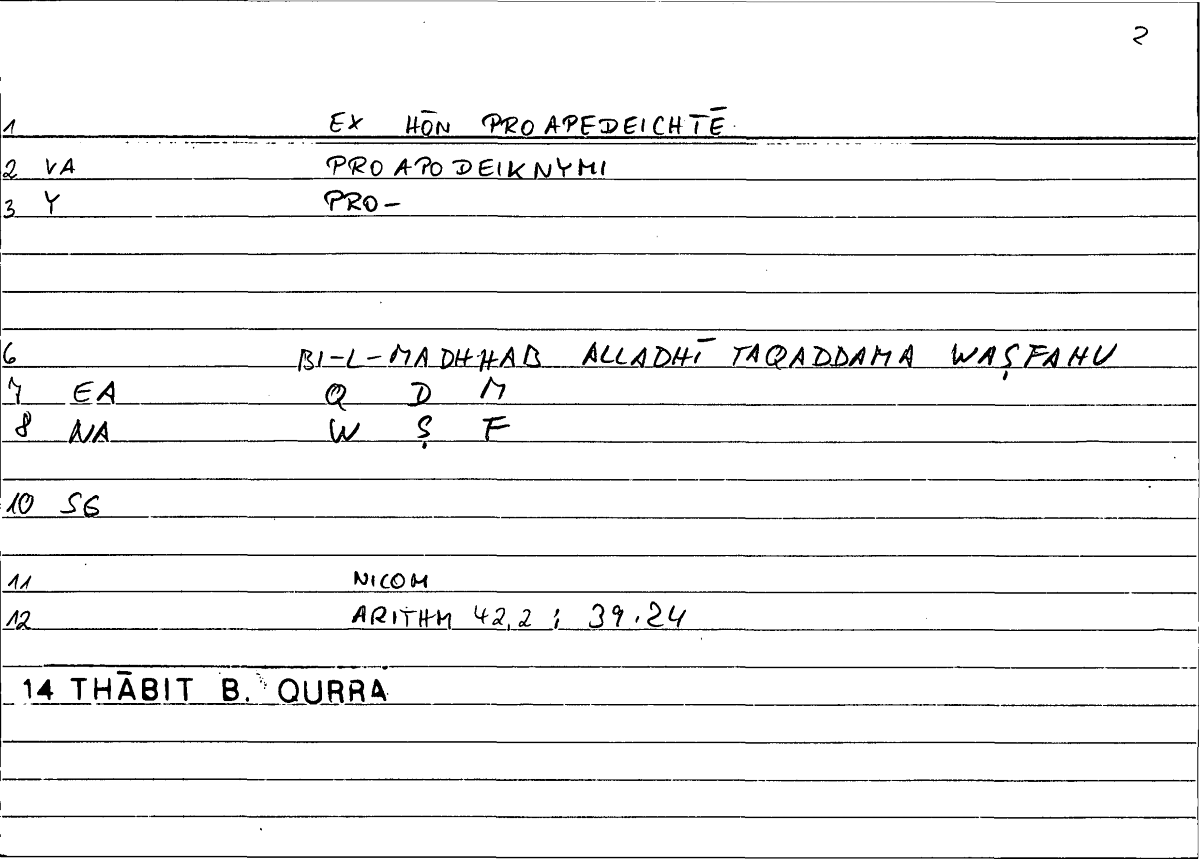 2
1 EX HŌN PROAPEDEICHTĒ
2 VA PROAPODEIKNYMI
3 Y PRO-
6 BI-L-MADHHAB ALLADHĪ TAQADDAMA WAṢFAHU
7 EA Q D M
8 NA W Ṣ F
10 SG
11 NICOM
12 ARITHM 42,2 ; 39.24
14 THĀBIT B. QURRA